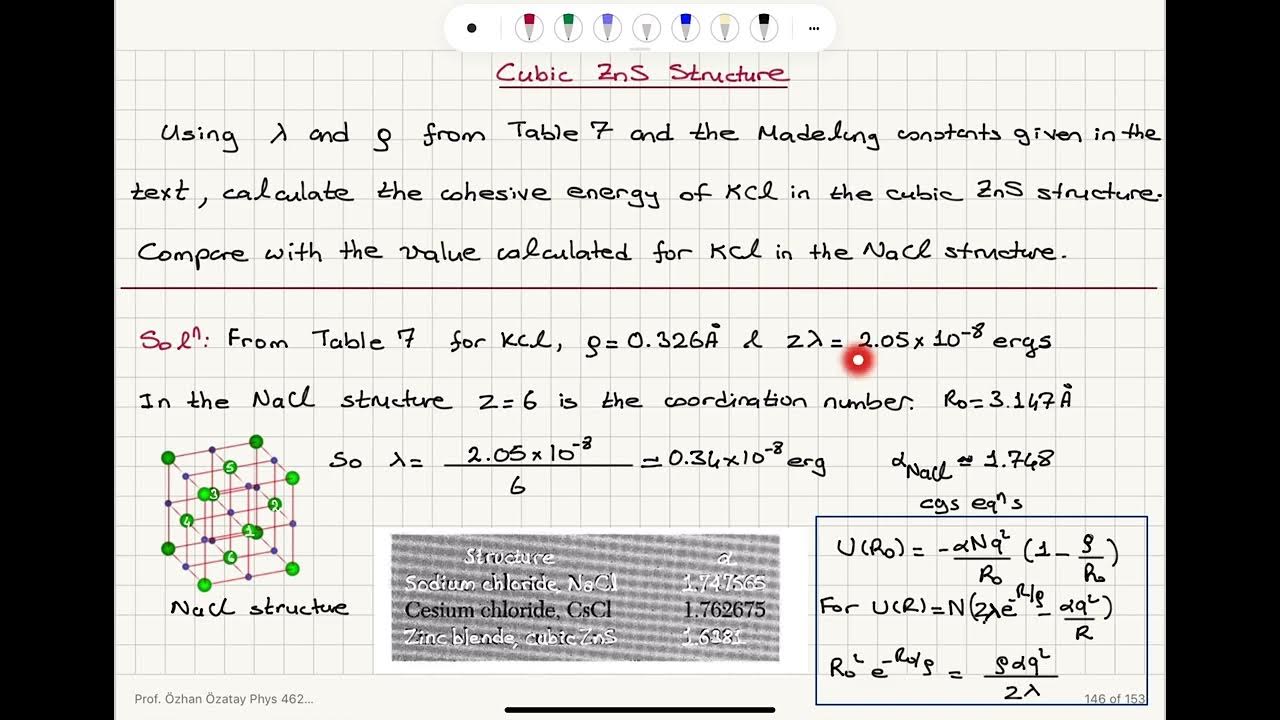 Cubic ZnS Structure
Using λ and ρ from Table 7 and the Madelung constants given in the
text, calculate the cohesive energy of KCl in the cubic ZnS structure.
Compare with the value calculated for KCl in the NaCl structure.
Solⁿ: From Table 7 for KCl, ρ = 0.326Å & zλ = 2.05×10⁻⁸ ergs
In the NaCl structure z=6 is the coordination number. R₀ = 3.147Å
So λ = 2.05×10⁻⁸ / 6 = 0.34×10⁻⁸ erg
α_NaCl = 1.748
cgs eqⁿs
5
3
2
4
1
6
NaCl structure
Structure α
Sodium chloride, NaCl 1.747565
Cesium chloride, CsCl 1.762675
Zinc blende, cubic ZnS 1.6381
U(R₀) = -αNq²/R₀ (1 - ρ/R₀)
For U(R) = N(zλe^(-R/ρ) - αq²/R)
R₀² e^(-R₀/ρ) = ραq²/zλ
Prof. Özhan Özatay Phys 462...
146 of 153